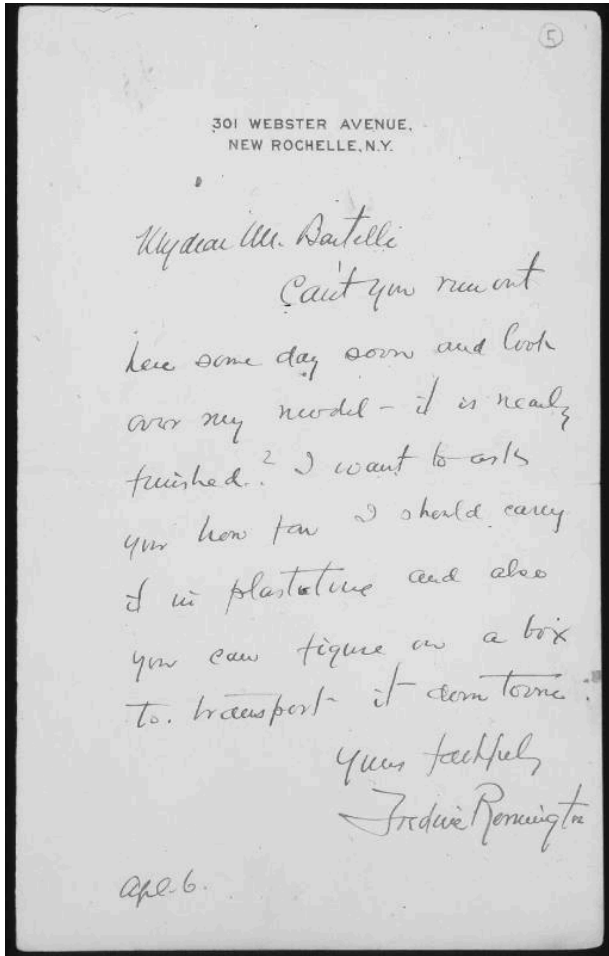 5
301 WEBSTER AVENUE,
NEW ROCHELLE, N.Y.
My dear Mr. Bertelli
Can't you run out
here some day soon and look
over my model - it is nearly
finished? I want to ask
you how far I should carry
it in plastotine and also
you can figure on a box
to transport it down town.
Yours faithfully
Frederic Remington
Apl-6.